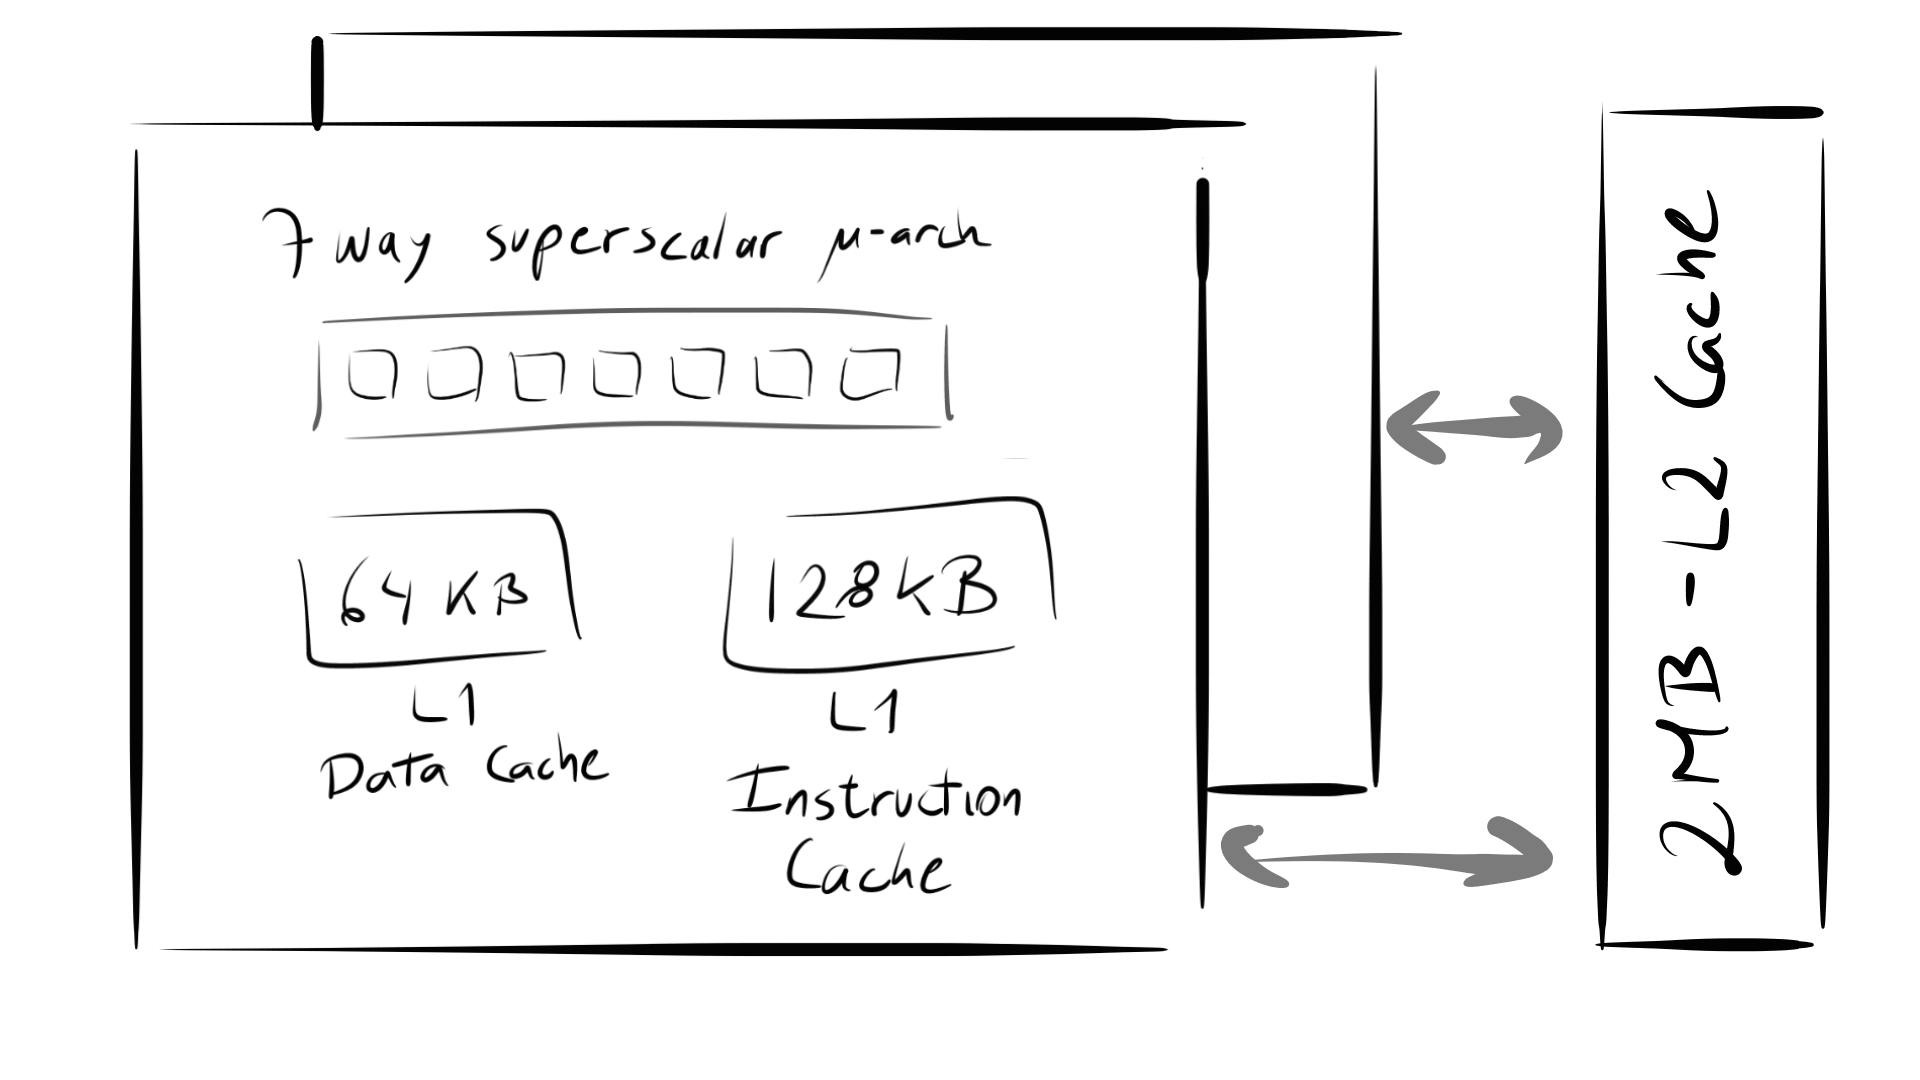 7 way superscalar μ-arch
64 KB
128KB
L1
Data Cache
L1
Instruction
Cache
2MB - L2 Cache